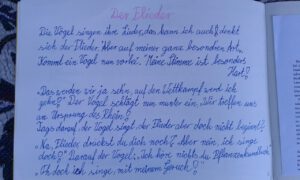 Der Flieder
Die Vögel singen ihre Lieder, das kann ich auch, denkt
sich der Flieder. Aber auf meine ganz besondere Art.
Kommt ein Vogel nun vorbei. Meine Stimme ist besonders
"Das werden wir ja sehn, auf den Wettkampf werd ich
gehn!" Der Vogel schlägt nun munter ein. Wir treffen uns
am Ursprung des Rhein!
Tags darauf der Vogel singt, der Flieder aber doch nicht beginnt?
"Na, Flieder, drückst du dich noch? Aber nein, ich singe
doch!" Darauf der Vogel: "Ich höre nichts du
"Oh doch ich singe mit meinem Geruch!"